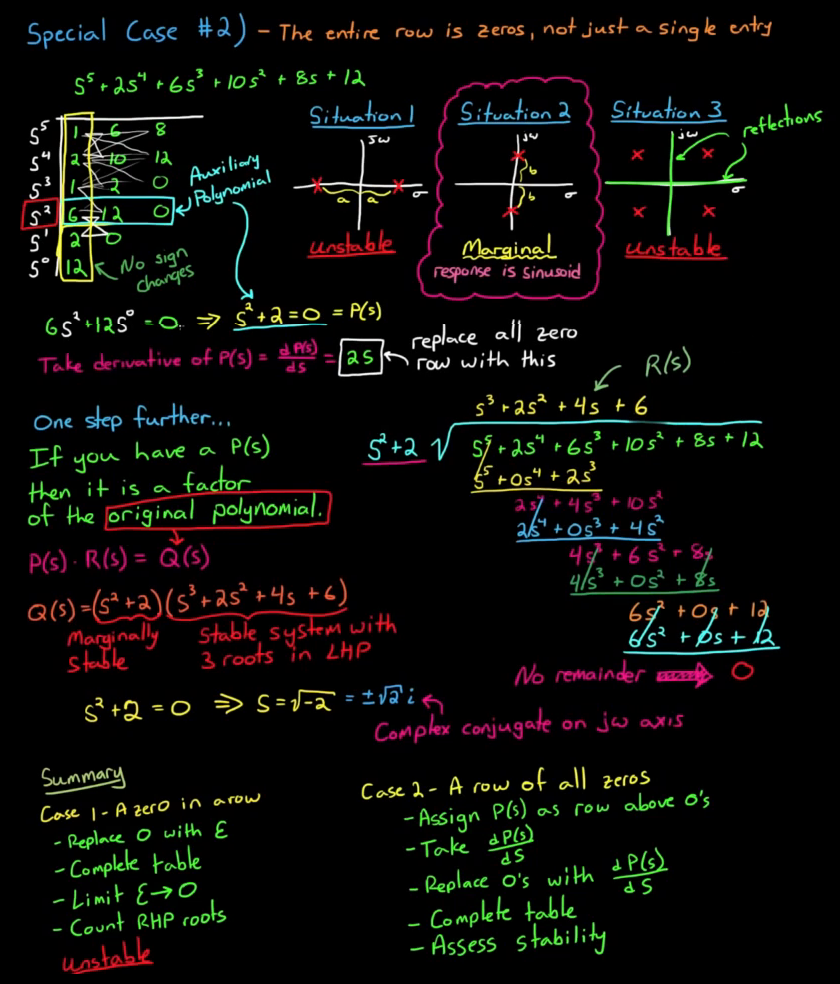 Special Case #2) - The entire row is zeros, not just a single entry
S⁵ + 2s⁴ + 6s³ + 10s² + 8s + 12
S⁵ 1 6 8
S⁴ 2 10 12
S³ 1 2 0
S² 6 12 0
S¹ 2 0
S⁰ 12
Auxiliary
Polynomial
No sign
changes
Situation 1
jω
σ
a a
unstable
Situation 2
jω
b
b
σ
Marginal
response is sinusoid
Situation 3
jω
σ
unstable
reflections
6s² + 12s⁰ = 0. ⇒ s² + 2 = 0 = P(s)
Take derivative of P(s) = dP(s)/ds = 2s
replace all zero
row with this
One step further...
If you have a P(s)
then it is a factor
of the original polynomial.
P(s) · R(s) = Q(s)
Q(s) = (s² + 2)(s³ + 2s² + 4s + 6)
Marginally
stable
Stable system with
3 roots in LHP
R(s)
s³ + 2s² + 4s + 6
s² + 2 √ s⁵ + 2s⁴ + 6s³ + 10s² + 8s + 12
s⁵ + 0s⁴ + 2s³
2s⁴ + 4s³ + 10s²
2s⁴ + 0s³ + 4s²
4s³ + 6s² + 8s
4s³ + 0s² + 8s
6s² + 0s + 12
6s² + 0s + 12
No remainder ⇒ 0
s² + 2 = 0 ⇒ s = √-2 = ±√2 i
Complex conjugate on jω axis
Summary
Case 1 - A zero in a row
- Replace 0 with ε
- Complete table
- Limit ε → 0
- Count RHP roots
unstable
Case 2 - A row of all zeros
- Assign P(s) as row above 0's
- Take dP(s)/ds
- Replace 0's with dP(s)/ds
- Complete table
- Assess stability